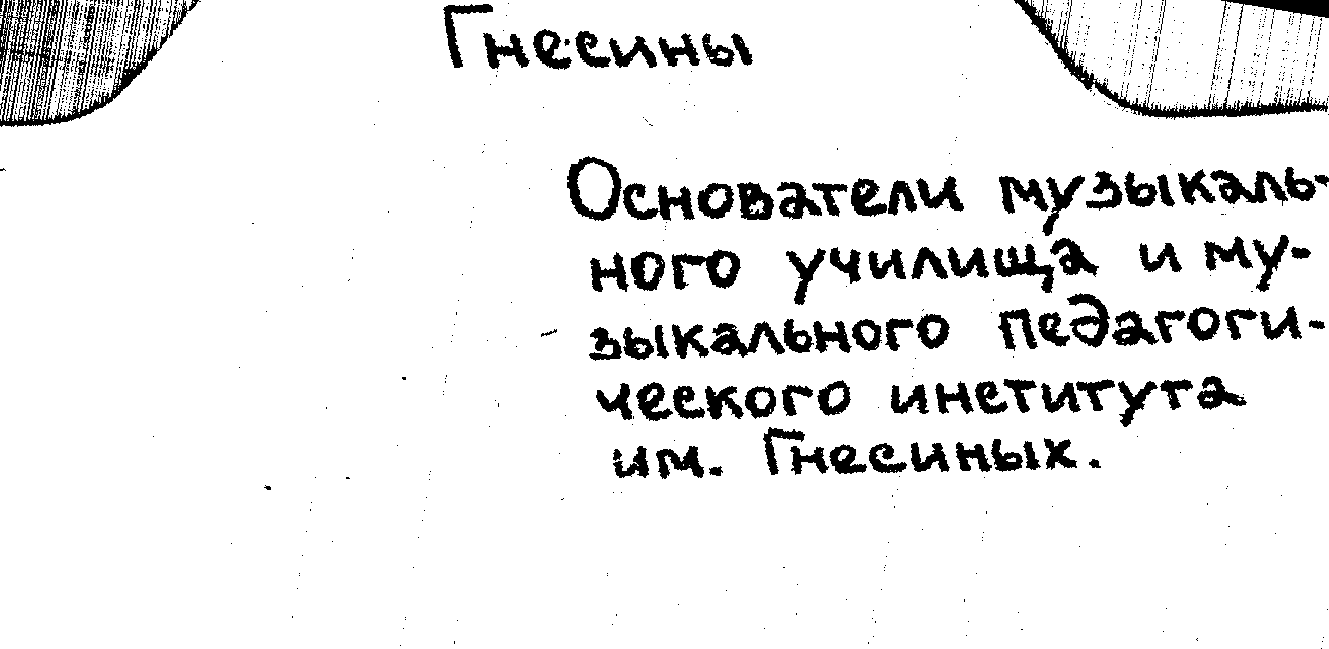 Гнесины
Основатели музыкаль-
ного училища и му-
зыкального педагоги-
ческого института
им. Гнесиных.